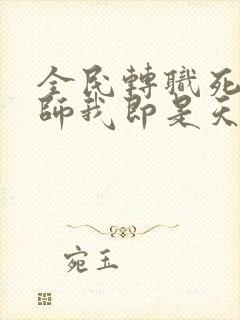 全民轉職死
師我即是天
宛玉